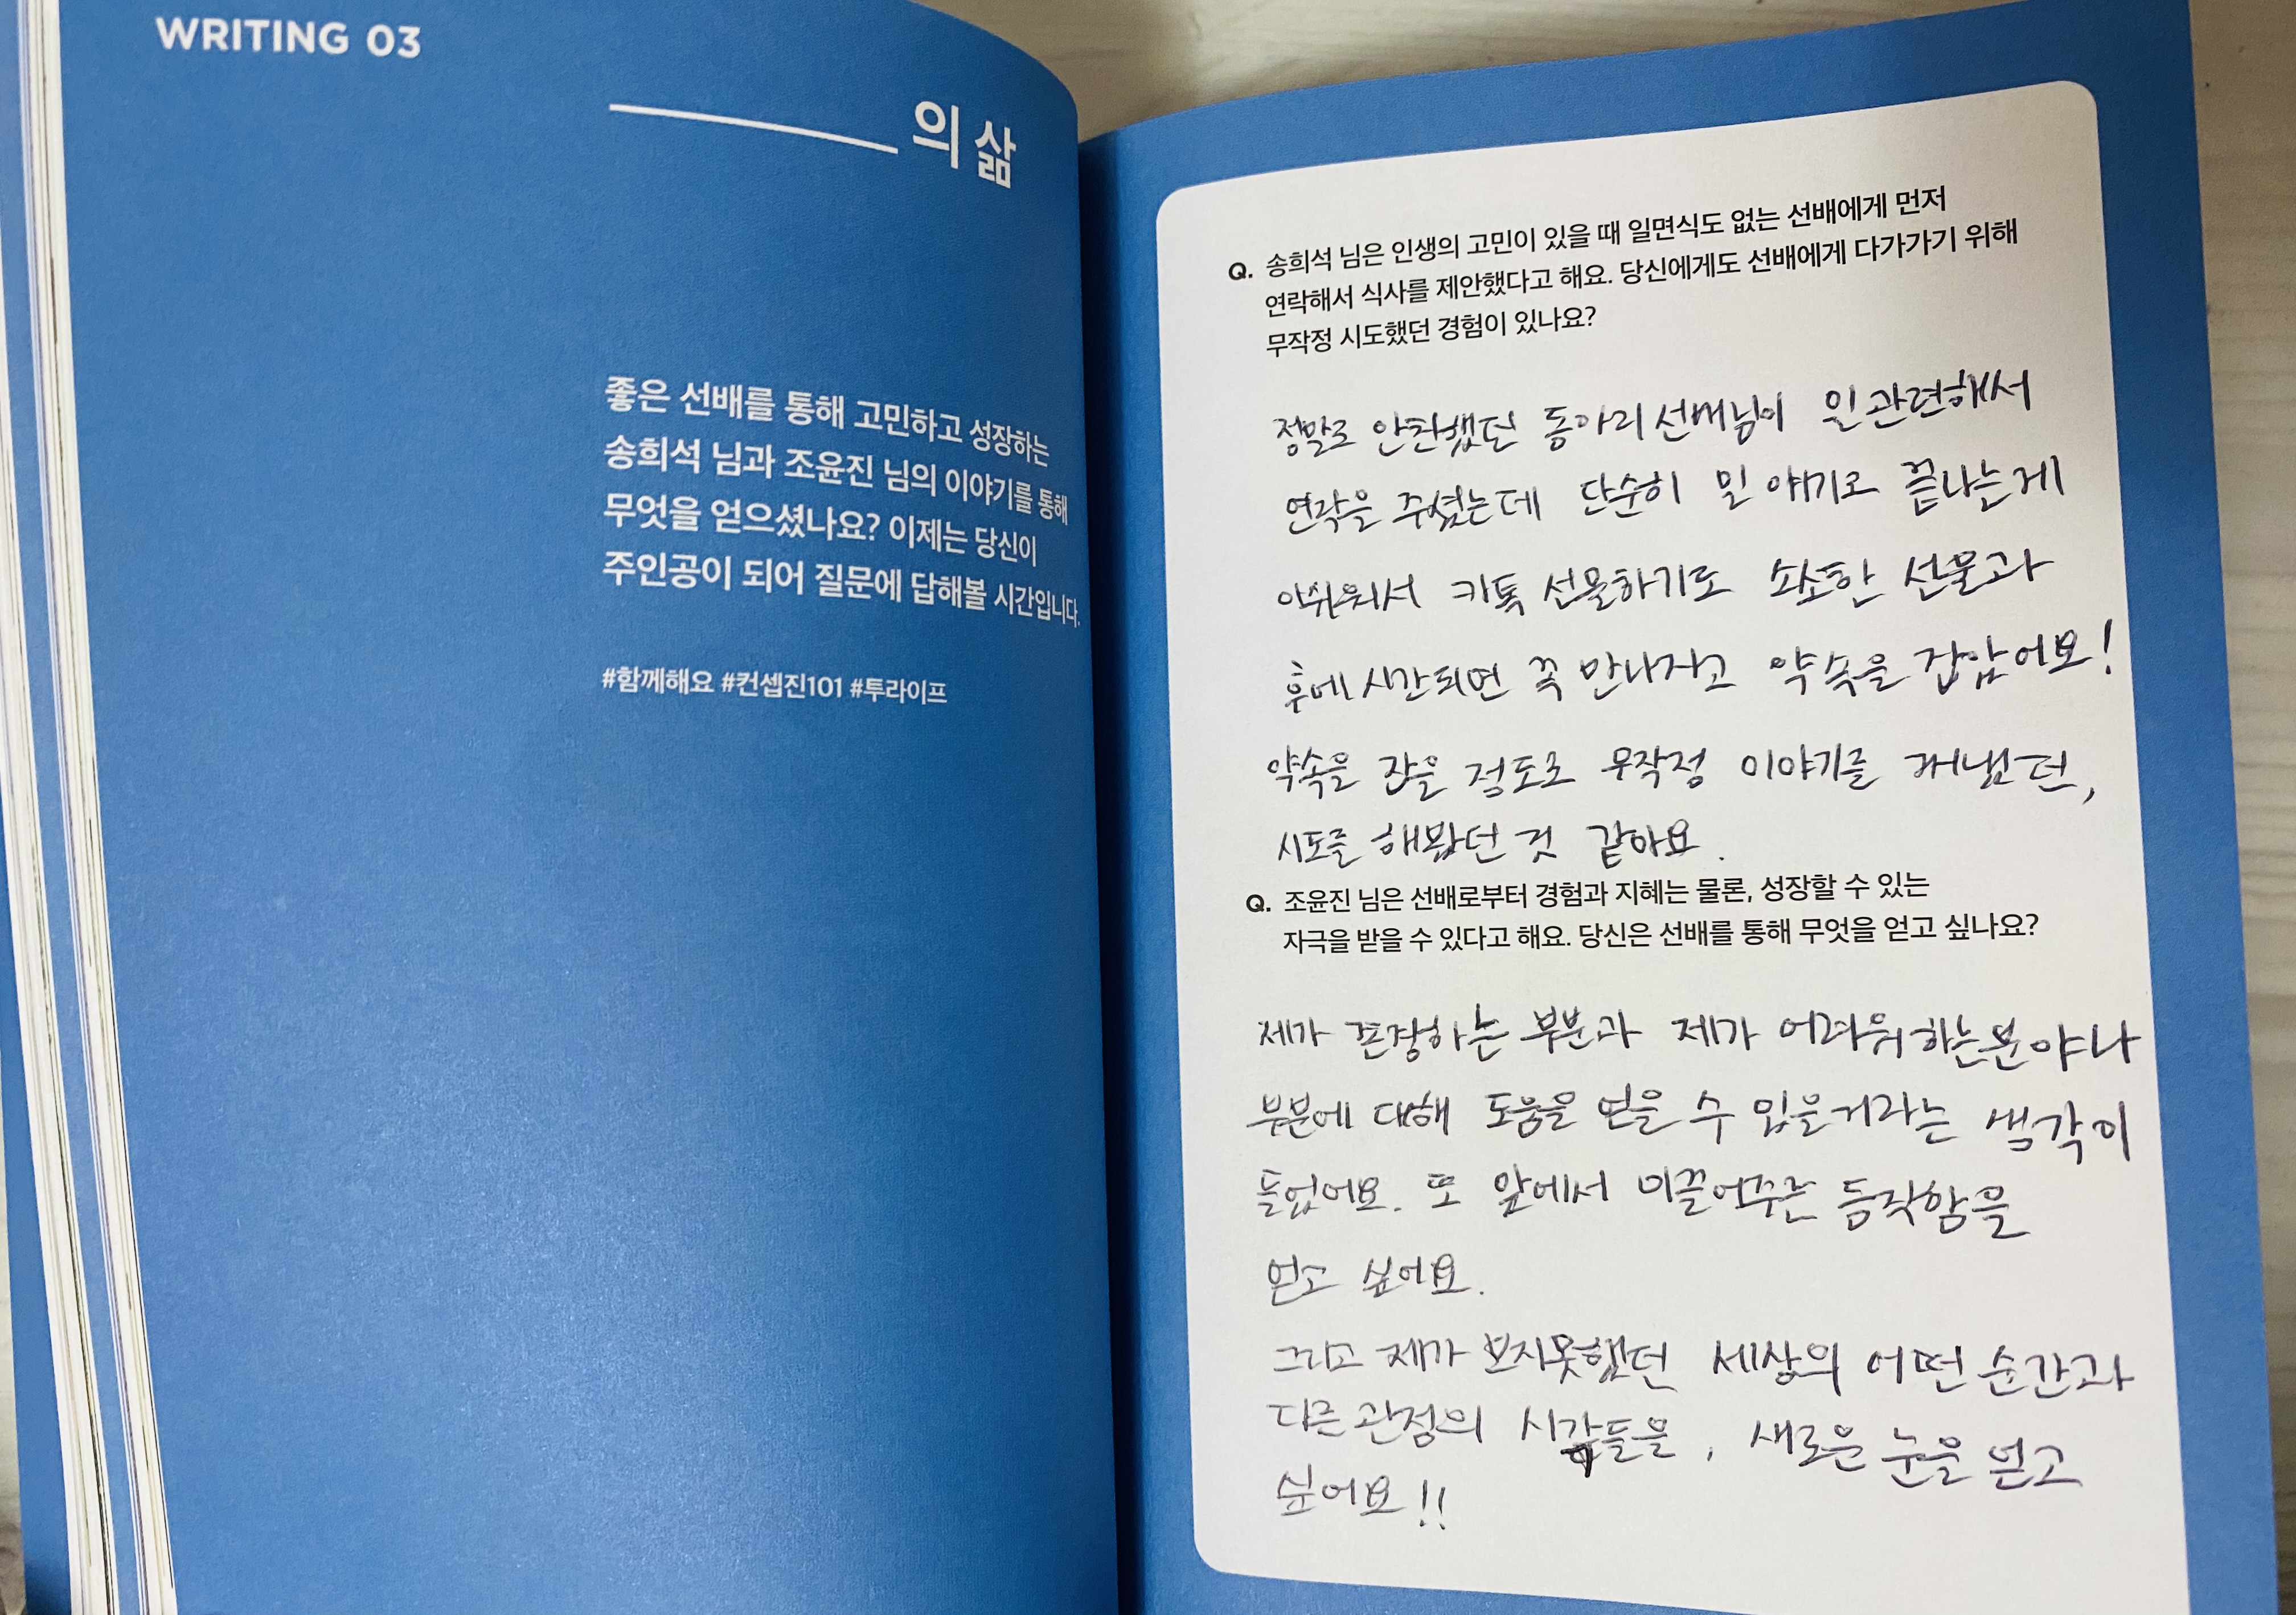 WRITING 03
의 삶
좋은 선배를 통해 고민하고 성장하는
송희석 님과 조윤진 님의 이야기를 통해
무엇을 얻으셨나요? 이제는 당신이
주인공이 되어 질문에 답해볼 시간입니다.
#함께해요 #컨셉진101 #투라이프
Q. 송희석 님은 인생의 고민이 있을 때 일면식도 없는 선배에게 먼저
연락해서 식사를 제안했다고 해요. 당신에게도 선배에게 다가가기 위해
무작정 시도했던 경험이 있나요?
정말로 안친했던 동아리 선배님이 일 관련해서
연락을 주셨는데 단순히 일 얘기로 끝나는게
아쉬워서 카톡 선물하기로 소소한 선물과
후에 시간되면 꼭 만나자고 약속을 잡았어요!
약속을 잡을 정도로 무작정 이야기를 꺼냈던,
시도를 해봤던 것 같아요.
Q. 조윤진 님은 선배로부터 경험과 지혜는 물론, 성장할 수 있는
자극을 받을 수 있다고 해요. 당신은 선배를 통해 무엇을 얻고 싶나요?
제가 존경하는 부분과 제가 어려워하는 분야나
부분에 대해 도움을 얻을 수 있을거라는 생각이
들었어요. 또 앞에서 이끌어주는 듬직함을
얻고 싶어요.
그리고 제가 보지못했던 세상의 어떤 순간과
다른 관점의 시각들을, 새로운 눈을 얻고
싶어요!!